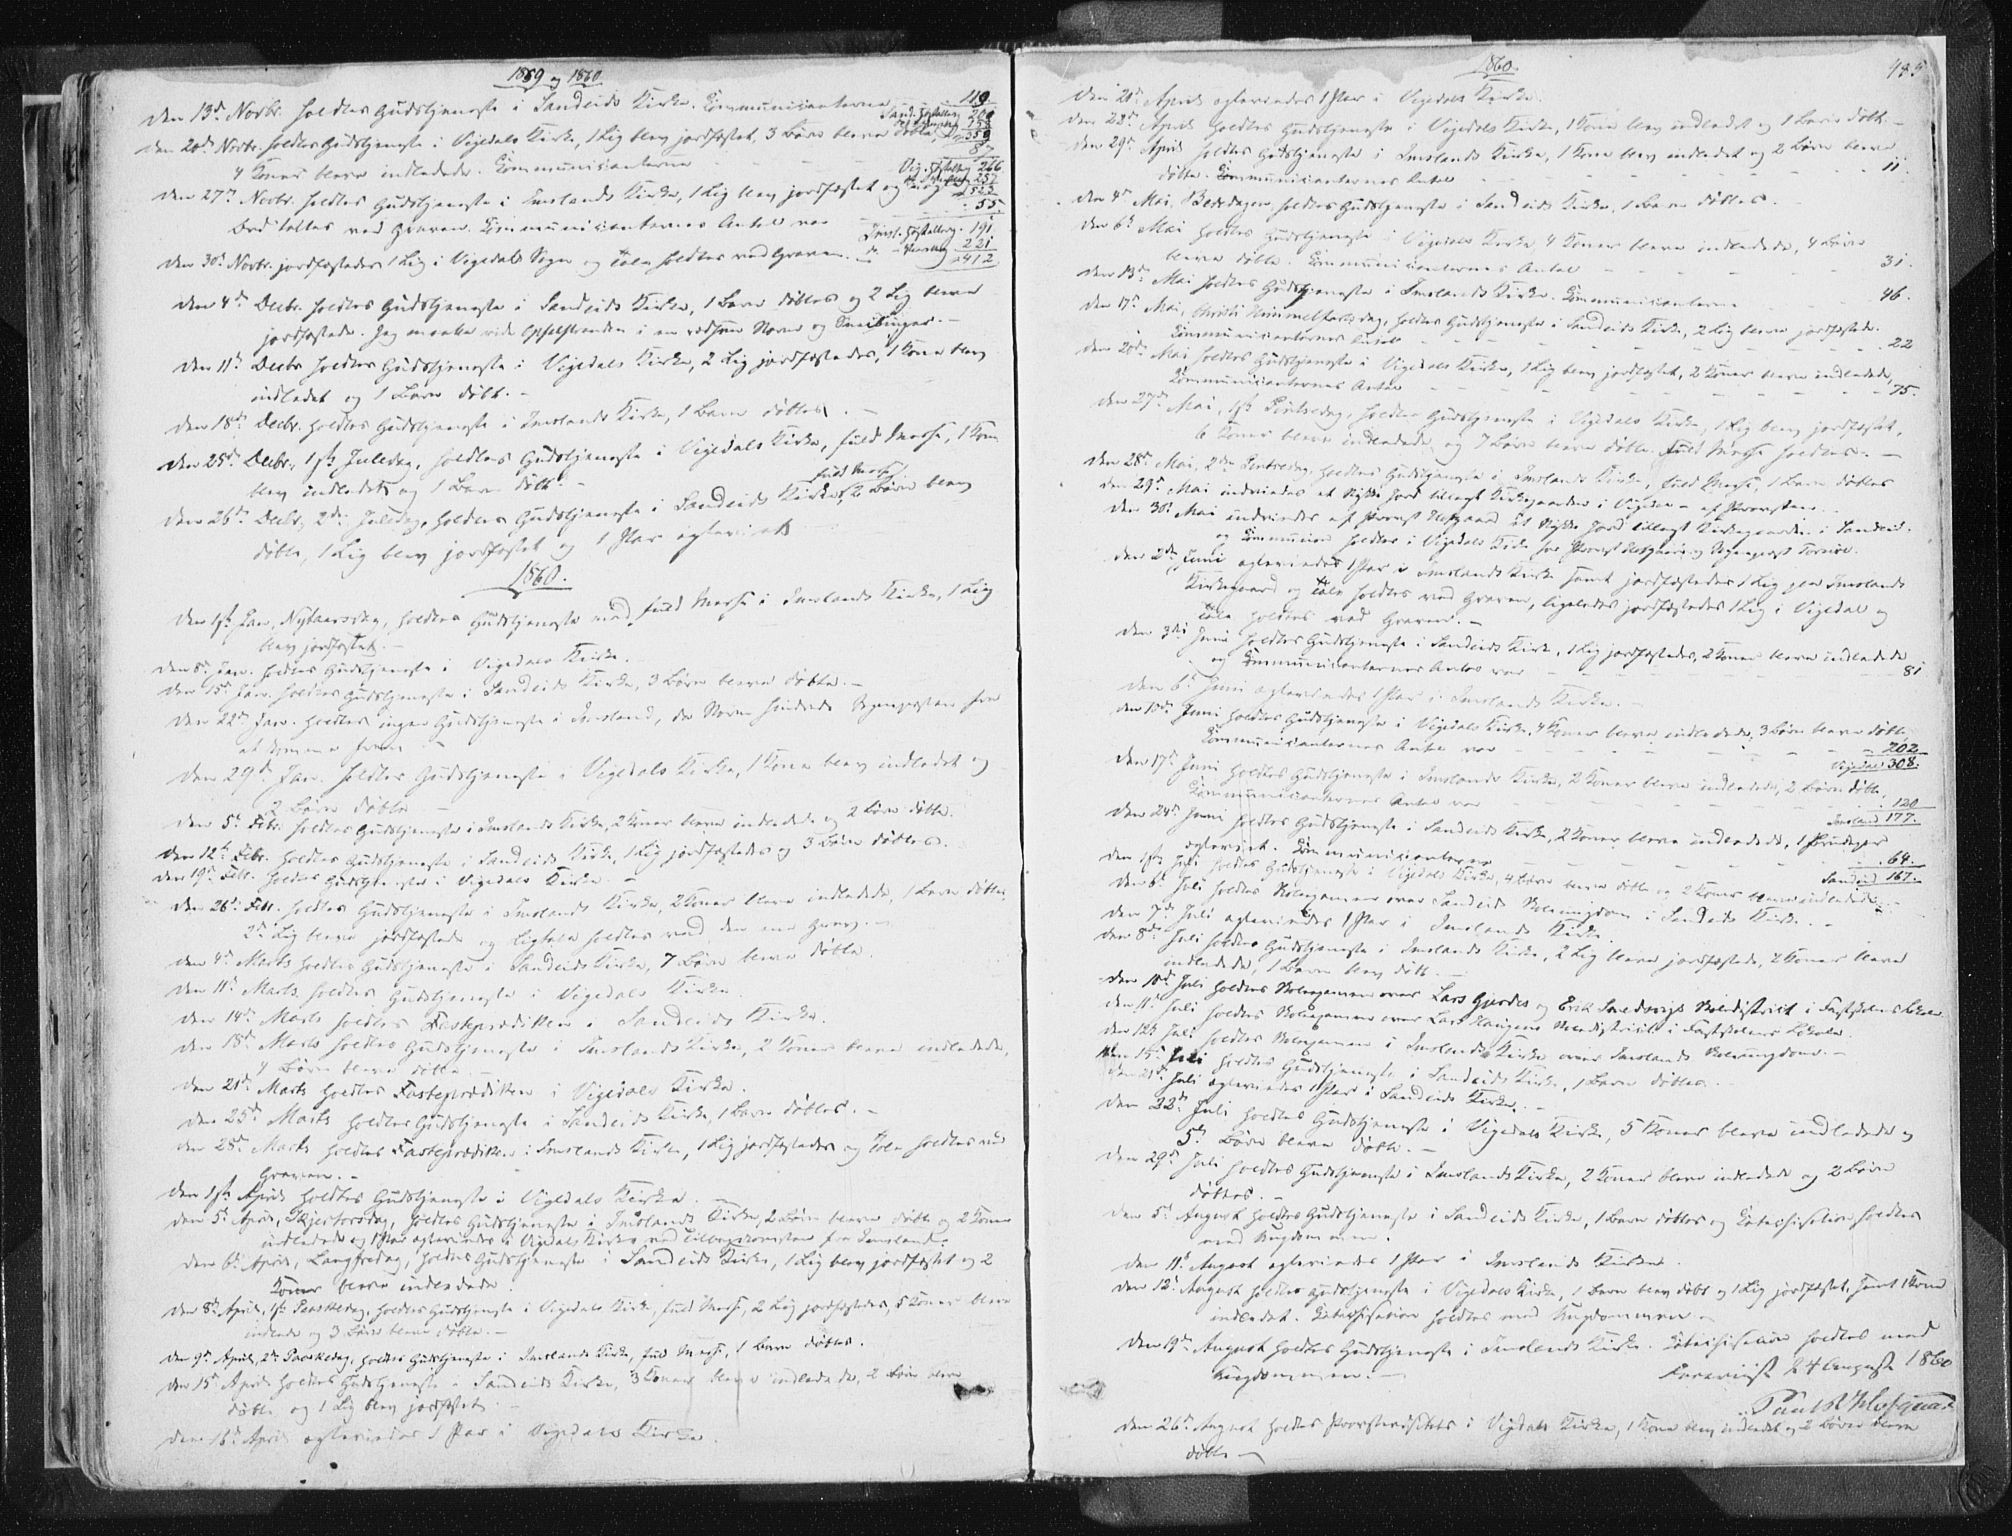 1859 og 1860.
Den 13de Novbr. holdtes Gudstjeneste i Sandeids Kirke. Communicanterne 119
Sand. Høsttallet 200
158
358
Den 20de Novbr. holdtes Gudstjeneste i Vigedals Kirke, 1 Lig blev jordfæstet, 3 Børn bleve døbte,
4 Koner bleve indledede. Communicanterne 87
Vig. Høsttallet 266
257
523
Den 27de Novbr. holdtes Gudstjeneste i Imslands Kirke, 1 Lig blev jordfæstet og nogle
Ord taltes ved Graven. Communicanternes Antal var 55
Imsl. Høsttallet 191
221
412
Den 30te Novbr. jordfæstedes 1 Lig i Vigedals Sogn og Tale holdtes ved Graven.
Den 4de Decbr. holdtes Gudstjeneste i Sandeids Kirke, 1 Barn døbtes og 2 Lig bleve
jordfæstede. Jeg maatte ride i en voldsom Storm og
Den 11te Decbr. holdtes Gudstjeneste i Vigedals Kirke, 2 Lig jordfæstedes, 1 Kone blev
indledet og 1 Barn døbt. -
Den 18de Decbr. holdtes Gudstjeneste i Imslands Kirke, 1 Barn døbtes. -
Den 25de Decbr., 1ste Juledag, holdtes Gudstjeneste i Vigedals Kirke, fuld Messe, 1 Kone
blev indledet og 1 Barn døbt. -
Den 26de Decbr., 2den Juledag, holdtes Gudstjeneste i Sandeids Kirke, fuld Messe, 2 Børn blev
døbte, 1 Lig blev jordfæstet og 1 Par egteviet
1860.
Den 1ste Jan., Nytaarsdag, holdtes Gudstjeneste med fuld Messe i Imslands Kirke, 1 Lig
blev jordfæstet. -
Den 8de Jan. holdtes Gudstjeneste i Vigedals Kirke.
Den 15de Jan. holdtes Gudstjeneste i Sandeids Kirke, 3 Børn bleve døbte. -
Den 22de Jan. holdtes ingen Gudstjeneste i Imsland, da Storm hindrede Sognepræsten fra
at komme frem. -
Den 29de Jan. holdtes Gudstjeneste i Vigedals Kirke, 1 Kone blev indledet og
2 Børn døbte -
Den 5te Febr. holdtes Gudstjeneste i Imslands Kirke, 2 Koner bleve indledede og 2 Børn døbte.
Den 12te Febr. holdtes Gudstjeneste i Sandeids Kirke, 1 Lig jordfæstedes og 3 Børn døbtes.
Den 19de Febr. holdtes Gudstjeneste i Vigedals Kirke. -
Den 26de Febr. holdtes Gudstjeneste i Imslands Kirke, 2 Koner bleve indledede, 1 Barn døbtes,
2 Lig bleve jordfæstede og Ligtale holdtes ved den ene Grav. -
Den 4de Marts holdtes Gudstjeneste i Sandeids Kirke, 7 Børn bleve døbte.
Den 11te Marts holdtes Gudstjeneste i Vigedals Kirke.
Den 14de Marts holdtes Fasteprædiken i Sandeids Kirke.
Den 18de Marts holdtes Gudstjeneste i Imslands Kirke, 2 Koner bleve indledede,
4 Børn bleve døbte. -
Den 21de Marts holdtes Fasteprædiken i Vigedals Kirke.
Den 25de Marts holdtes Gudstjeneste i Sandeids Kirke, 1 Barn døbtes. -
Den 28de Marts holdtes Fasteprædiken i Imslands Kirke, 1 Lig jordfæstedes og Tale holdtes ved
Graven. -
Den 1ste April holdtes Gudstjeneste i Vigedals Kirke. -
Den 5te April, Skjertorsdag, holdtes Gudstjeneste i Imslands Kirke, 2 Børn bleve døbte og 2 Koner
indledede og 1 Par egteviedes i Vigedals Kirke ved Tilbagekomsten fra Imsland.
Den 6te April, Langfredag, holdtes Gudstjeneste i Sandeids Kirke, 1 Lig blev jordfæstet og 2
Koner bleve indledede.
Den 8de April, 1ste Paaskedag, holdtes Gudstjeneste i Vigedals Kirke, fuld Messe, 2 Lig jordfæstedes, 5 Koner bleve
indledede og 3 Børn bleve døbte. -
Den 9de April, 2den Paaskedag, holdtes Gudstjeneste i Imslands Kirke, fuld Messe, 1 Barn døbtes.
Den 15de April holdtes Gudstjeneste i Sandeids Kirke, 3 Koner bleve indledede, 2 Børn bleve
døbte og 1 Lig blev jordfæstet. -
Den 16de April egteviedes 1 Par i Vigedals Kirke.
1860.
Den 21de April egteviedes 1 Par i Vigedals Kirke.
Den 22de April holdtes Gudstjeneste i Vigedals Kirke, 1 Kone blev indledet og 1 Barn døbt. -
Den 29de April holdtes Gudstjeneste i Imslands Kirke, 1 Kone blev indledet og 2 Børn bleve
døbte. Communicanternes Antal 11.
Den 4de Mai, Bededagen, holdtes Gudstjeneste i Sandeids Kirke, 1 Barn døbtes.
Den 6te Mai holdtes Gudstjeneste i Vigedals Kirke, 4 Koner bleve indledede, 4 Børn
bleve døbte. Communicanternes Antal 31.
Den 13de Mai holdtes Gudstjeneste i Imslands Kirke. Communicanterne 46.
Den 17de Mai, Christi Himmelfartsdag, holdtes Gudstjeneste i Sandeids Kirke, 2 Lig bleve jordfæstede.
Communicanternes Antal 22
Den 20de Mai holdtes Gudstjeneste i Vigedals Kirke, 1 Lig blev jordfæstet, 2 Koner bleve indledede,
Communicanternes Antal 75.
Den 27de Mai, 1ste Pintsedag, holdtes Gudstjeneste i Vigedals Kirke, 1 Lig blev jordfæstet,
6 Koner bleve indledede og 7 Børn bleve døbte. Fuld Messe holdtes. -
Den 28de Mai, 2den Pintsedag, holdtes Gudstjeneste i Imslands Kirke, fuld Messe, 1 Barn døbtes
Den 29de Mai indviedes et Stykke Jord tillagt Kirkegaarden i Vigedal af Provsten.
Den 30te Mai indviedes af Provst et Stykke Jord tillagt Kirkegaarden i Sandeid.
og Communion holdtes i Vigedals Kirke for Provst og Sognepræst
Den 2den Juni egteviedes 1 Par i Imslands Kirke samt jordfæstedes 1 Lig paa Imslands
Kirkegaard og Tale holdtes ved Graven, ligeledes jordfæstedes 1 Lig i Vigedal og
Tale holdtes ved Graven. -
Den 3die Juni holdtes Gudstjeneste i Sandeids Kirke, 1 Lig jordfæstedes, 2 Koner bleve indledede
og Communicanternes Antal var 81
Den 6te Juni egteviedes 1 Par i Imslands Kirke. -
Den 10de Juni holdtes Gudstjeneste i Vigedals Kirke, 4 Koner bleve indledede, 3 Børn bleve døbte,
Communicanternes Antal var 202
Vigedal 308.
Den 17de Juni holdtes Gudstjeneste i Imslands Kirke, 2 Koner bleve indledede, 2 Børn døbte,
Communicanternes Antal var 120
Imsland 177.
Den 24de Juni holdtes Gudstjeneste i Sandeids Kirke, 2 Koner bleve indledede, 1 Brudepar
egteviet. Communicanterne 64.
Sandeid 167.
Den 1ste Juli holdtes Gudstjeneste i Vigedals Kirke, 4 Børn bleve døbte og 2 Koner bleve indledede.
Den 6te Juli holdtes Skoleexamen over Sandeids Skoleungdom i Sandeids Kirke. -
Den 7de Juli egteviedes 1 Par i Imslands Kirke.
Den 8de Juli holdtes Gudstjeneste i Imslands Kirke, 2 Lig bleve jordfæstede, 2 Koner bleve
indledede, 1 Barn blev døbt. -
Den 10de Juli holdtes Skoleexamen over Lars Gjerdes og Erik Skoledistrict i Fastskolens Lokale.
Den 11te Juli holdtes Skoleexamen over Lars Haugens Skoledistrict i Fastskolens Lokale.
Den 12te Juli holdtes Skoleexamen i Imslands Kirke over Imslands Skoleungdom. -
Den 15de Juli holdtes Gudstjeneste i Sandeids Kirke, 1 Barn døbtes.
Den 21de Juli egteviedes 1 Par i Sandeids Kirke. -
Den 22de Juli holdtes Gudstjeneste i Vigedals Kirke, 5 Koner bleve indledede og
5 Børn bleve døbte. -
Den 29de Juli holdtes Gudstjeneste i Imslands Kirke, 2 Koner bleve indledede og 2 Børn
døbtes. -
Den 5te August holdtes Gudstjeneste i Sandeids Kirke, 1 Barn døbtes og Catechisation holdtes
med Ungdommen.
Den 11te August egteviedes 1 Par i Imslands Kirke.
Den 12te August holdtes Gudstjeneste i Vigedals Kirke, 1 Barn blev døbt og 1 Lig jordfæstet, samt 1 Kone
indledet. Catechisation holdtes med Ungdommen -
Den 19de August holdtes Gudstjeneste i Imslands Kirke. Catechisation holdtes med
Ungdommen. -
Foreviist 24 August 1860
Den 26de August holdtes Provstevisitats i Vigedals Kirke, 1 Kone blev indledet og 2 Børn bleve
døbte -